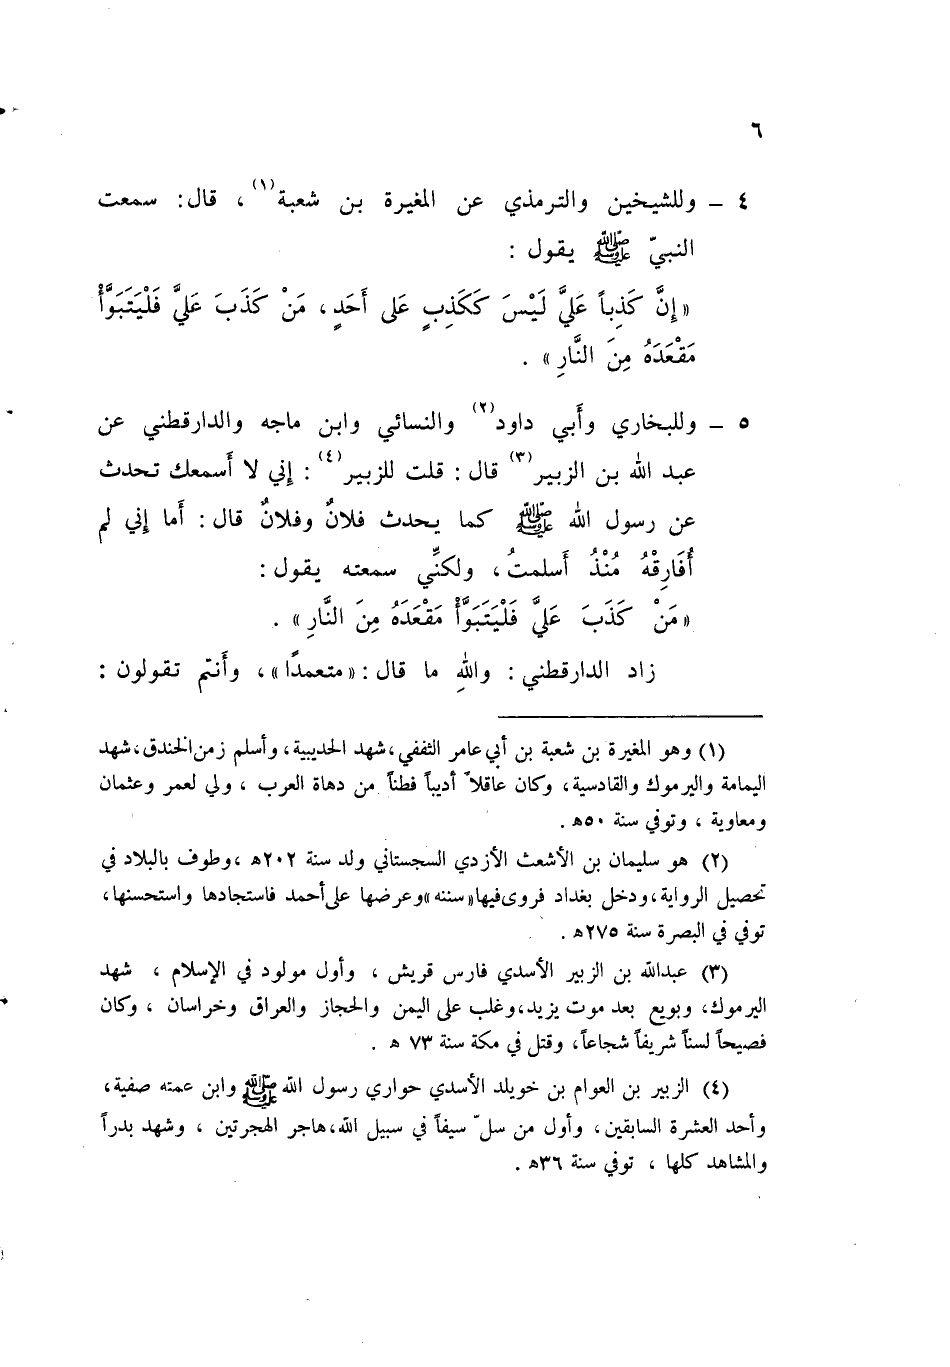 ٦
٤ – وللشيخين والترمذي عن المغيرة بن شعبة(١) ، قال: سمعت
النبيّ ﷺ يقول :
«إِنَّ كَذِباً عَلَيَّ لَيْسَ كَكَذِبٍ عَلى أَحَدٍ، مَنْ كَذَبَ عَلَيَّ فَلْيَتَبَوَّأْ
مَقْعَدَهُ مِنَ النَّارِ» .
٥ – وللبخاري وأَبي داود(٢) والنسائي وابن ماجه والدارقطني عن
عبد الله بن الزبير(٣) قال : قلت للزبير(٤) : إِني لا أَسمعك تحدث
عن رسول الله ﷺ كما يحدث فلانٌ وفلانٌ قال: أَما إِني لم
أُفَارِقْهُ مُنْذُ أَسلمتُ، ولكنِّي سمعته يقول :
«مَنْ كَذَبَ عَلَيَّ فَلْيَتَبَوَّأْ مَقْعَدَهُ مِنَ النَّارِ» .
زاد الدارقطني : واللهِ ما قال : «متعمدًا»، وأَنتم تقولون :
(١) وهو المغيرة بن شعبة بن أبي عامر الثقفي،شهد الحديبية، وأسلم زمن الخندق،شهد
اليمامة واليرموك والقادسية، وكان عاقلاً أديباً فطناً من دهاة العرب ، ولي لعمر وعثمان
ومعاوية ، وتوفي سنة ٥٠ه .
(٢) هو سليمان بن الأشعث الأزدي السجستاني ولد سنة ٢٠٢ه ،وطوف بالبلاد في
تحصيل الرواية،ودخل بغداد فروى فيها«سننه»وعرضها على أحمد فاستجادها واستحسنها،
توفي في البصرة سنة ٢٧٥ه .
(٣) عبدالله بن الزبير الأسدي فارس قريش ، وأول مولود في الإسلام ، شهد
اليرموك، وبويع بعد موت يزيد،وغلب على اليمن والحجاز والعراق وخراسان ، وكان
فصيحاً لسناً شريفاً شجاعاً، وقتل في مكة سنة ٧٣ ه .
(٤) الزبير بن العوام بن خويلد الأسدي حواري رسول الله ﷺ وابن عمته صفية،
وأحد العشرة السابقين، وأول من سلّ سيفاً في سبيل الله،هاجر الهجرتين ، وشهد بدراً
والمشاهد كلها ، توفي سنة ٣٦ه .